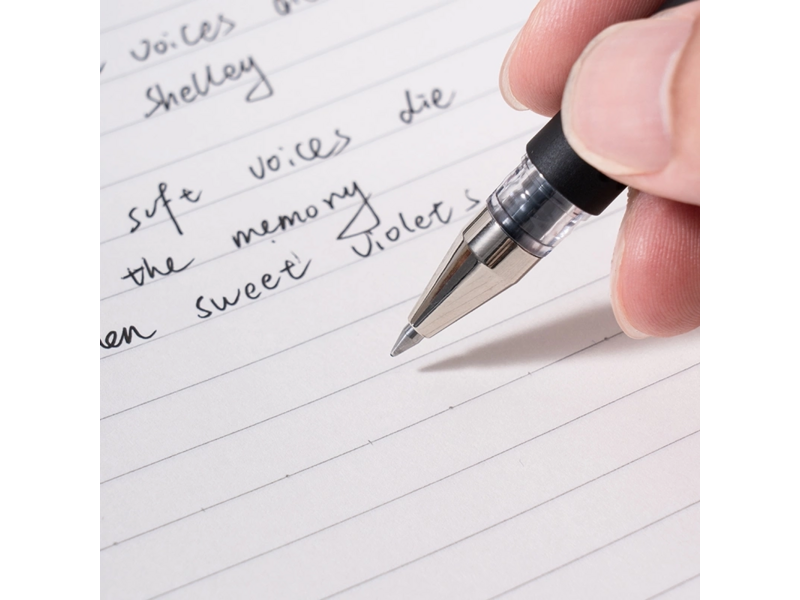 voices
Shelley
soft voices die
the memory
sweet violets